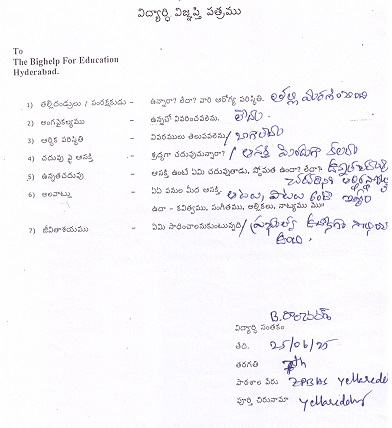 విద్యార్థి విజ్ఞప్తి పత్రము
To
The Bighelp For Education
Hyderabad.
1) తల్లిదండ్రులు / సంరక్షకుడు - ఉన్నారా? లేదా? వారి ఆరోగ్య పరిస్థితి. తల్లి మరణించింది
2) అంగవైకల్యము - ఉన్నచో వివరించవలెను. లేదు
3) ఆర్థిక పరిస్థితి - వివరములు తెలుపవలెను/ బాగాలేదు
4) చదువు పై ఆసక్తి - శ్రద్ధగా చదువుచున్నారా? / ఆసక్తి కలదు
5) ఉన్నతచదువు - ఆసక్తి ఉంటే ఏమి చదువుతాడు, స్తోమత ఉందా? లేదా?
6) అలవాట్లు - ఏఏ పనుల మీద ఆసక్తి. ఆటలు, పాటలు అంటే ఇష్టం
ఉదా - కవిత్వము, సంగీతము, అల్లికలు, నాట్యము ము॥
7) జీవితాశయము - ఏమి సాధించాలనుకుంటున్నది/ ఉద్యోగం
విద్యార్థి సంతకం
తేది. 25/06/25
తరగతి 7th
పాఠశాల పేరు ZPBHS Yellareddy
పూర్తి చిరునామా Yellareddy